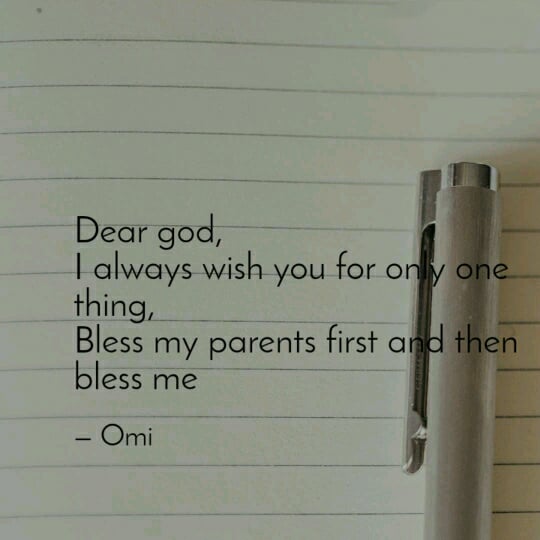 Dear god,
I always wish you for only one
thing,
Bless my parents first and then
bless me
– Omi